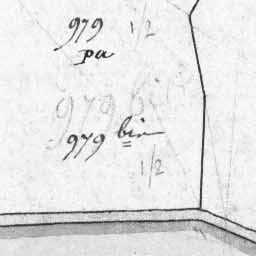 979 1/2
pa
979 bis
979 bis
1/2